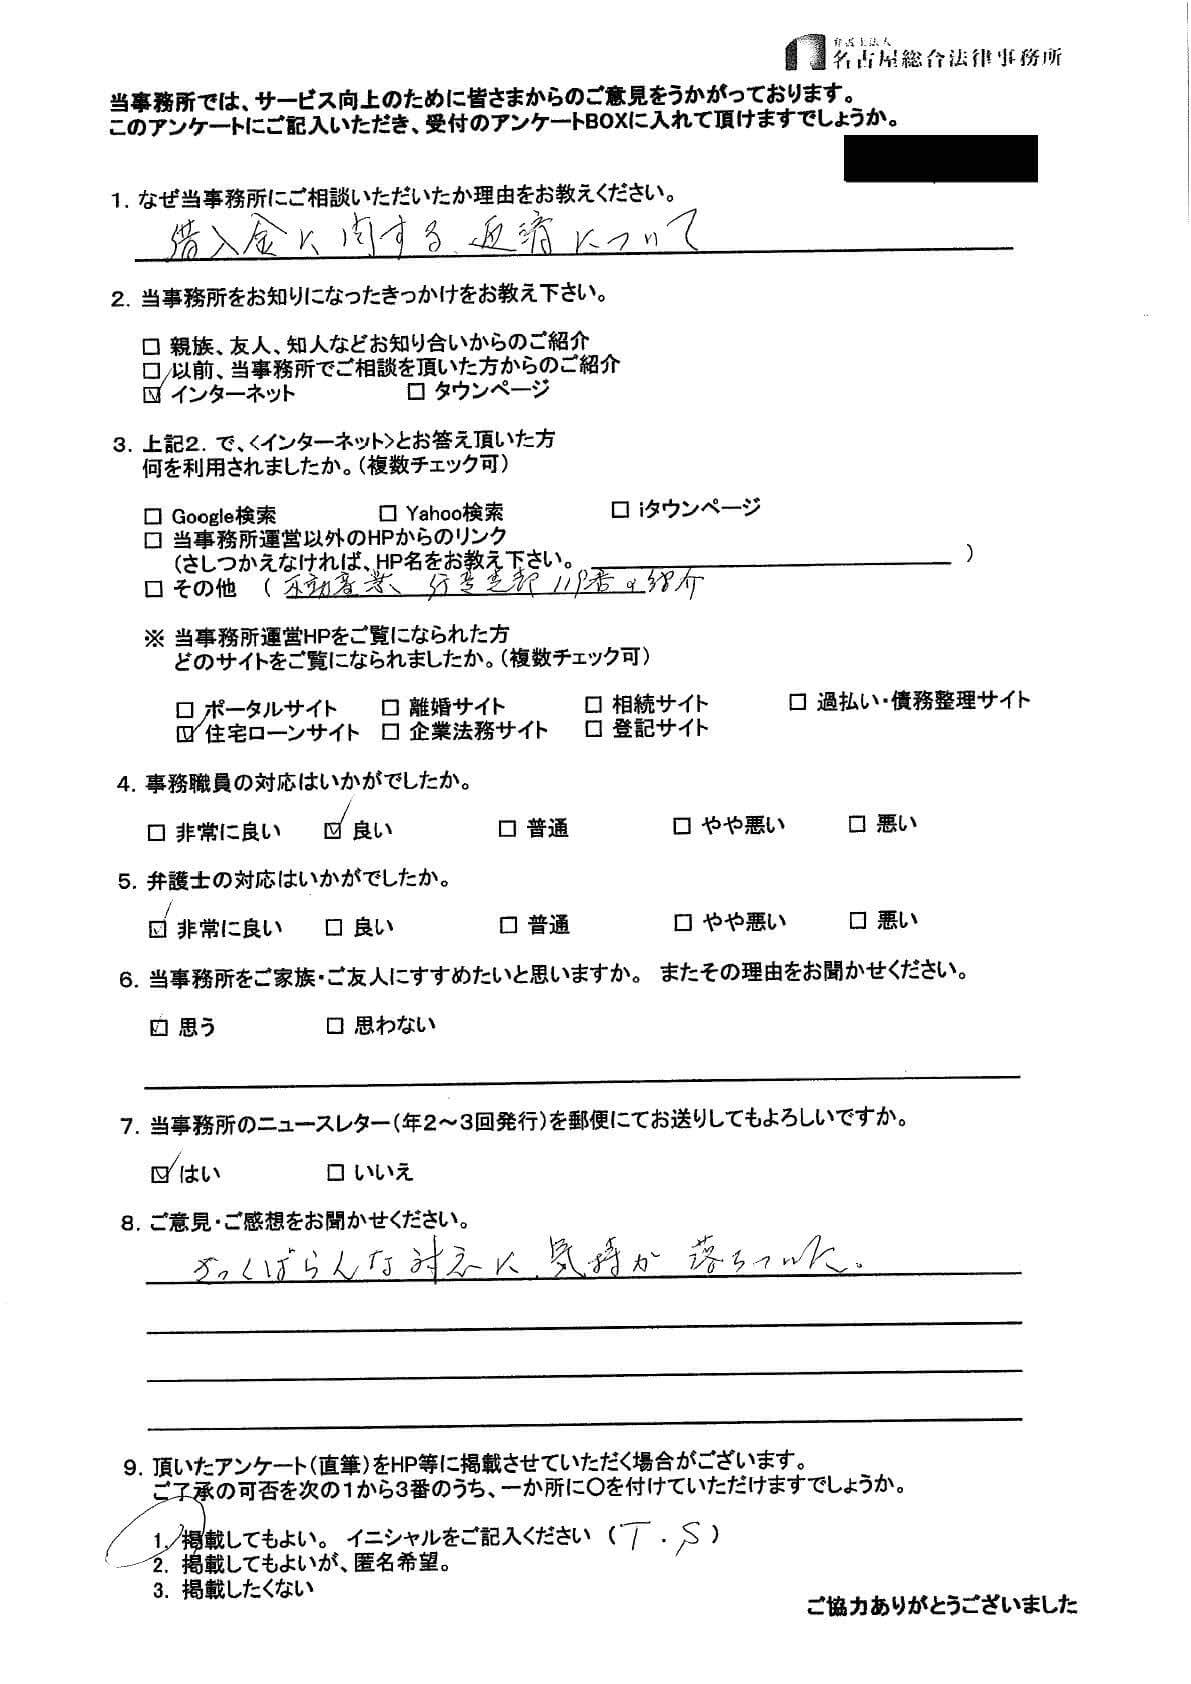 弁護士法人
名古屋総合法律事務所
当事務所では、サービス向上のために皆さまからのご意見をうかがっております。
このアンケートにご記入いただき、受付のアンケートBOXに入れて頂けますでしょうか。
1. なぜ当事務所にご相談いただいたか理由をお教えください。
借入金に関する返済について
2. 当事務所をお知りになったきっかけをお教え下さい。
□ 親族、友人、知人などお知り合いからのご紹介
□ 以前、当事務所でご相談を頂いた方からのご紹介
☑ インターネット □ タウンページ
3. 上記2. で、<インターネット>とお答え頂いた方
何を利用されましたか。(複数チェック可)
□ Google検索 □ Yahoo検索 □ iタウンページ
□ 当事務所運営以外のHPからのリンク
(さしつかえなければ、HP名をお教え下さい。 )
□ その他 ( 不動産業 119番の紹介
※ 当事務所運営HPをご覧になられた方
どのサイトをご覧になられましたか。(複数チェック可)
□ ポータルサイト □ 離婚サイト □ 相続サイト □ 過払い・債務整理サイト
☑ 住宅ローンサイト □ 企業法務サイト □ 登記サイト
4. 事務職員の対応はいかがでしたか。
□ 非常に良い ☑ 良い □ 普通 □ やや悪い □ 悪い
5. 弁護士の対応はいかがでしたか。
☑ 非常に良い □ 良い □ 普通 □ やや悪い □ 悪い
6. 当事務所をご家族・ご友人にすすめたいと思いますか。 またその理由をお聞かせください。
☑ 思う □ 思わない
7. 当事務所のニュースレター(年2〜3回発行)を郵便にてお送りしてもよろしいですか。
☑ はい □ いいえ
8. ご意見・ご感想をお聞かせください。
ざっくばらんな対応に、気持が落ちついた。
9. 頂いたアンケート(直筆)をHP等に掲載させていただく場合がございます。
ご了承の可否を次の1から3番のうち、一か所に〇を付けていただけますでしょうか。
1. 掲載してもよい。 イニシャルをご記入ください ( T.S )
2. 掲載してもよいが、匿名希望。
3. 掲載したくない
ご協力ありがとうございました